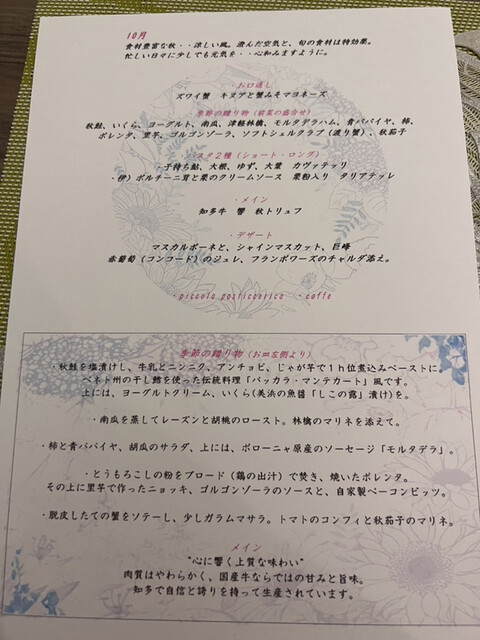 10月
食材豊富な秋・・涼しい風。澄んだ空気と、旬の食材は特効薬。
忙しい日々に少しでも元気を・・心和みますように。
・お口通し
ズワイ蟹　キヌアと蟹みそマヨネーズ
季節の贈り物（前菜の盛合せ）
秋鮭、いくら、ヨーグルト、南瓜、津軽林檎、モルタデラハム、青パパイヤ、柿、
ポレンタ、里芋、ゴルゴンゾーラ、ソフトシュルクラブ（渡り蟹）、秋茄子
・パスタ２種（ショート・ロング）
・子持ち鮎、大根、ゆず、大葉　カヴァテッリ
・伊）ポルチーニ茸と栗のクリームソース　栗粉入り　タリアテッレ
・メイン
知多牛　響　秋トリュフ
・デザート
マスカルポーネと、シャインマスカット、巨峰
赤葡萄（コンコード）のジュレ、フランボワーズのチャルダ添え。
・piccola pasticceria　・caffe
季節の贈り物（お皿左側より）
・秋鮭を塩漬けし、牛乳とニンニク、アンチョビ、じゃが芋で１ｈ位煮込みペーストに。
ベネト州の干し鱈を使った伝統料理「バッカラ・マンテカート」風です。
上には、ヨーグルトクリーム、いくら(美浜の魚醤「しこの露」漬け)を。
・南瓜を蒸してレーズンと胡桃のロースト。林檎のマリネを添えて。
・柿と青パパイヤ、胡瓜のサラダ、上には、ボローニャ原産のソーセージ「モルタデラ」。
・とうもろこしの粉をブロード（鶏の出汁）で焚き、焼いたポレンタ。
その上に里芋で作ったニョッキ、ゴルゴンゾーラのソースと、自家製ベーコンビッツ。
・脱皮したての蟹をソテーし、少しガラムマサラ。トマトのコンフィと秋茄子のマリネ。
メイン
“心に響く上質な味わい”
肉質はやわらかく、国産牛ならではの甘みと旨味。
知多で自信と誇りを持って生産されています。